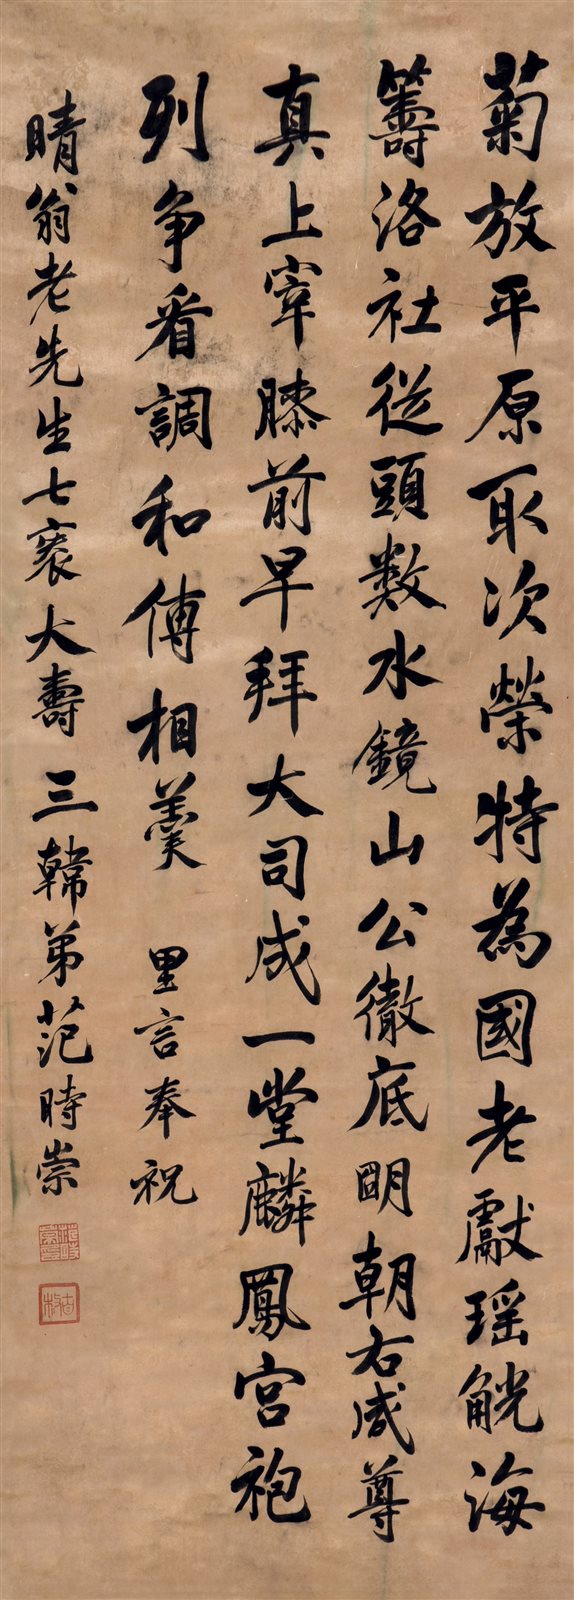 菊放平原取次榮特為國老獻瑤觥海
籌洛社從頭數水鏡山公徹底明朝右咸尊
真上宰膝前早拜大司成一堂麟鳳宮袍
列爭看調和傅相羹　里言奉祝
晴翁老先生七袠大壽　三韓弟范時崇